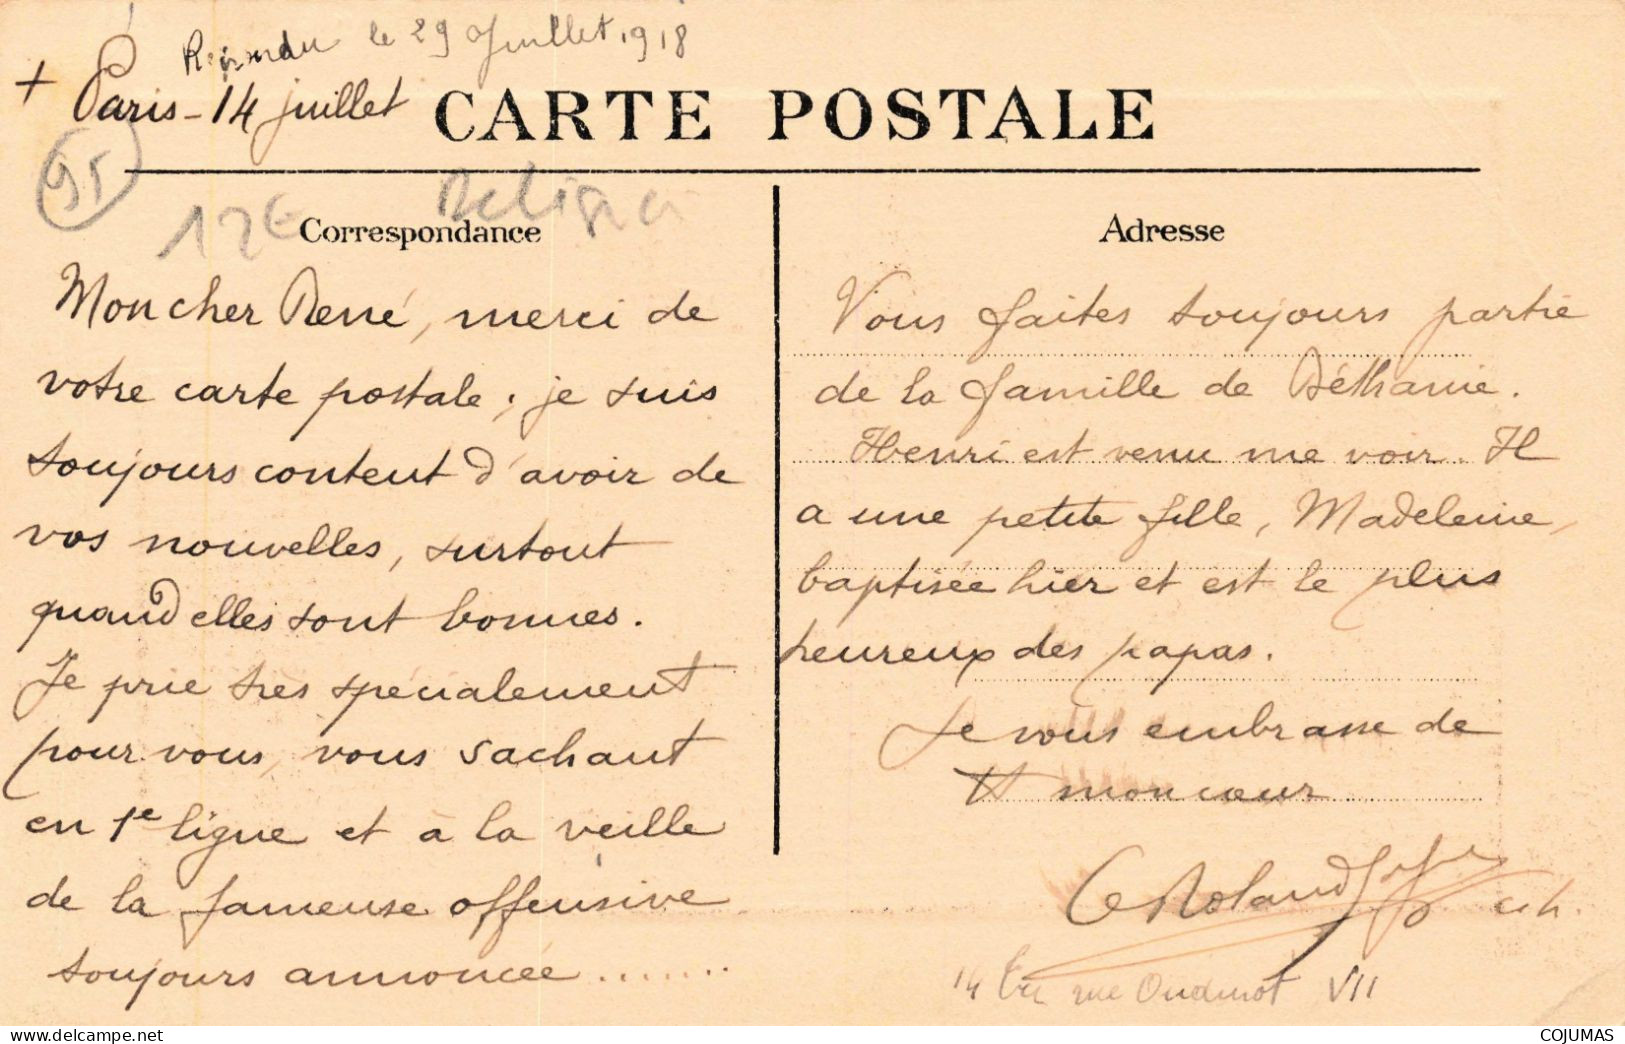 Répondu le 29 Juillet 1918
+ Paris - 14 juillet
CARTE POSTALE
95
12€
Correspondance
Adresse
Mon cher René, merci de
votre carte postale ; je suis
toujours content d'avoir de
vos nouvelles, surtout
quand elles sont bonnes.
Je prie très spécialement
pour vous, vous sachant
en 1e ligne et à la veille
de la fameuse offensive
toujours annoncée.......
Vous faites toujours partie
de la famille de Béthanie.
Henri est venu me voir. Il
a une petite fille, Madeleine,
baptisée hier et est le plus
heureux des papas.
Je vous embrasse de
tt mon cœur
Roland
14 bis rue Oudinot VII
COJUMAS